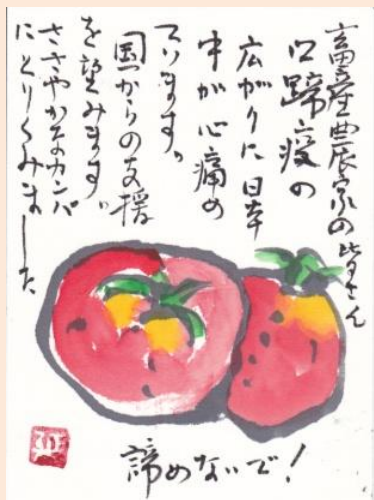 畜産農家の皆さん
口蹄疫の
広がりに日本
中が心痛め
ています。
国からの支援
を望みます。
ささやかなカンパ
にとりくみました
諦めないで!